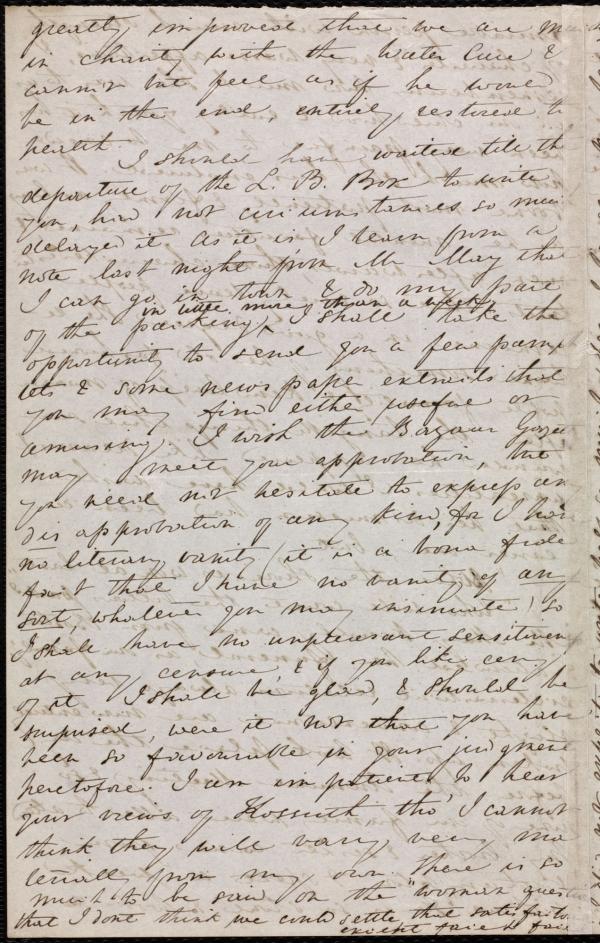 greatly improved that we are m
in charity with the Water Cure &
cannot but feel as if he would
be in the end, entirely restored to
health.
I should have waited till th
departure of the L. B. Box to write
you, had not circumstances so much
delayed it. As it is, I learn from a
note last night from Mr May that
I can go in town & do my part
in little more than a week,
of the packing, I shall take the
opportunity to send you a few pamph
lets & some newspaper extracts that
you may find either useful or
amusing. I wish the Bazaar Gazette
may meet your approbation, but
you need not hesitate to express an
disapprobation of any kind, for I have
no literary vanity (it is a bona fide
fact that I have no vanity of any
sort, whatever you may insinuate) so
I shall have no unpleasant sensitiven
at any censure, & if you like any
of it I shall be glad, & should be
surprised, were it not that you have
been so favourable in your judgment
heretofore. I am impatient to hear
your views of Kossuth tho' I cannot
think they will vary very ma
terially from my own. There is so
much to be said on the "woman question
that I dont think we could settle that satisfacto
except face to face